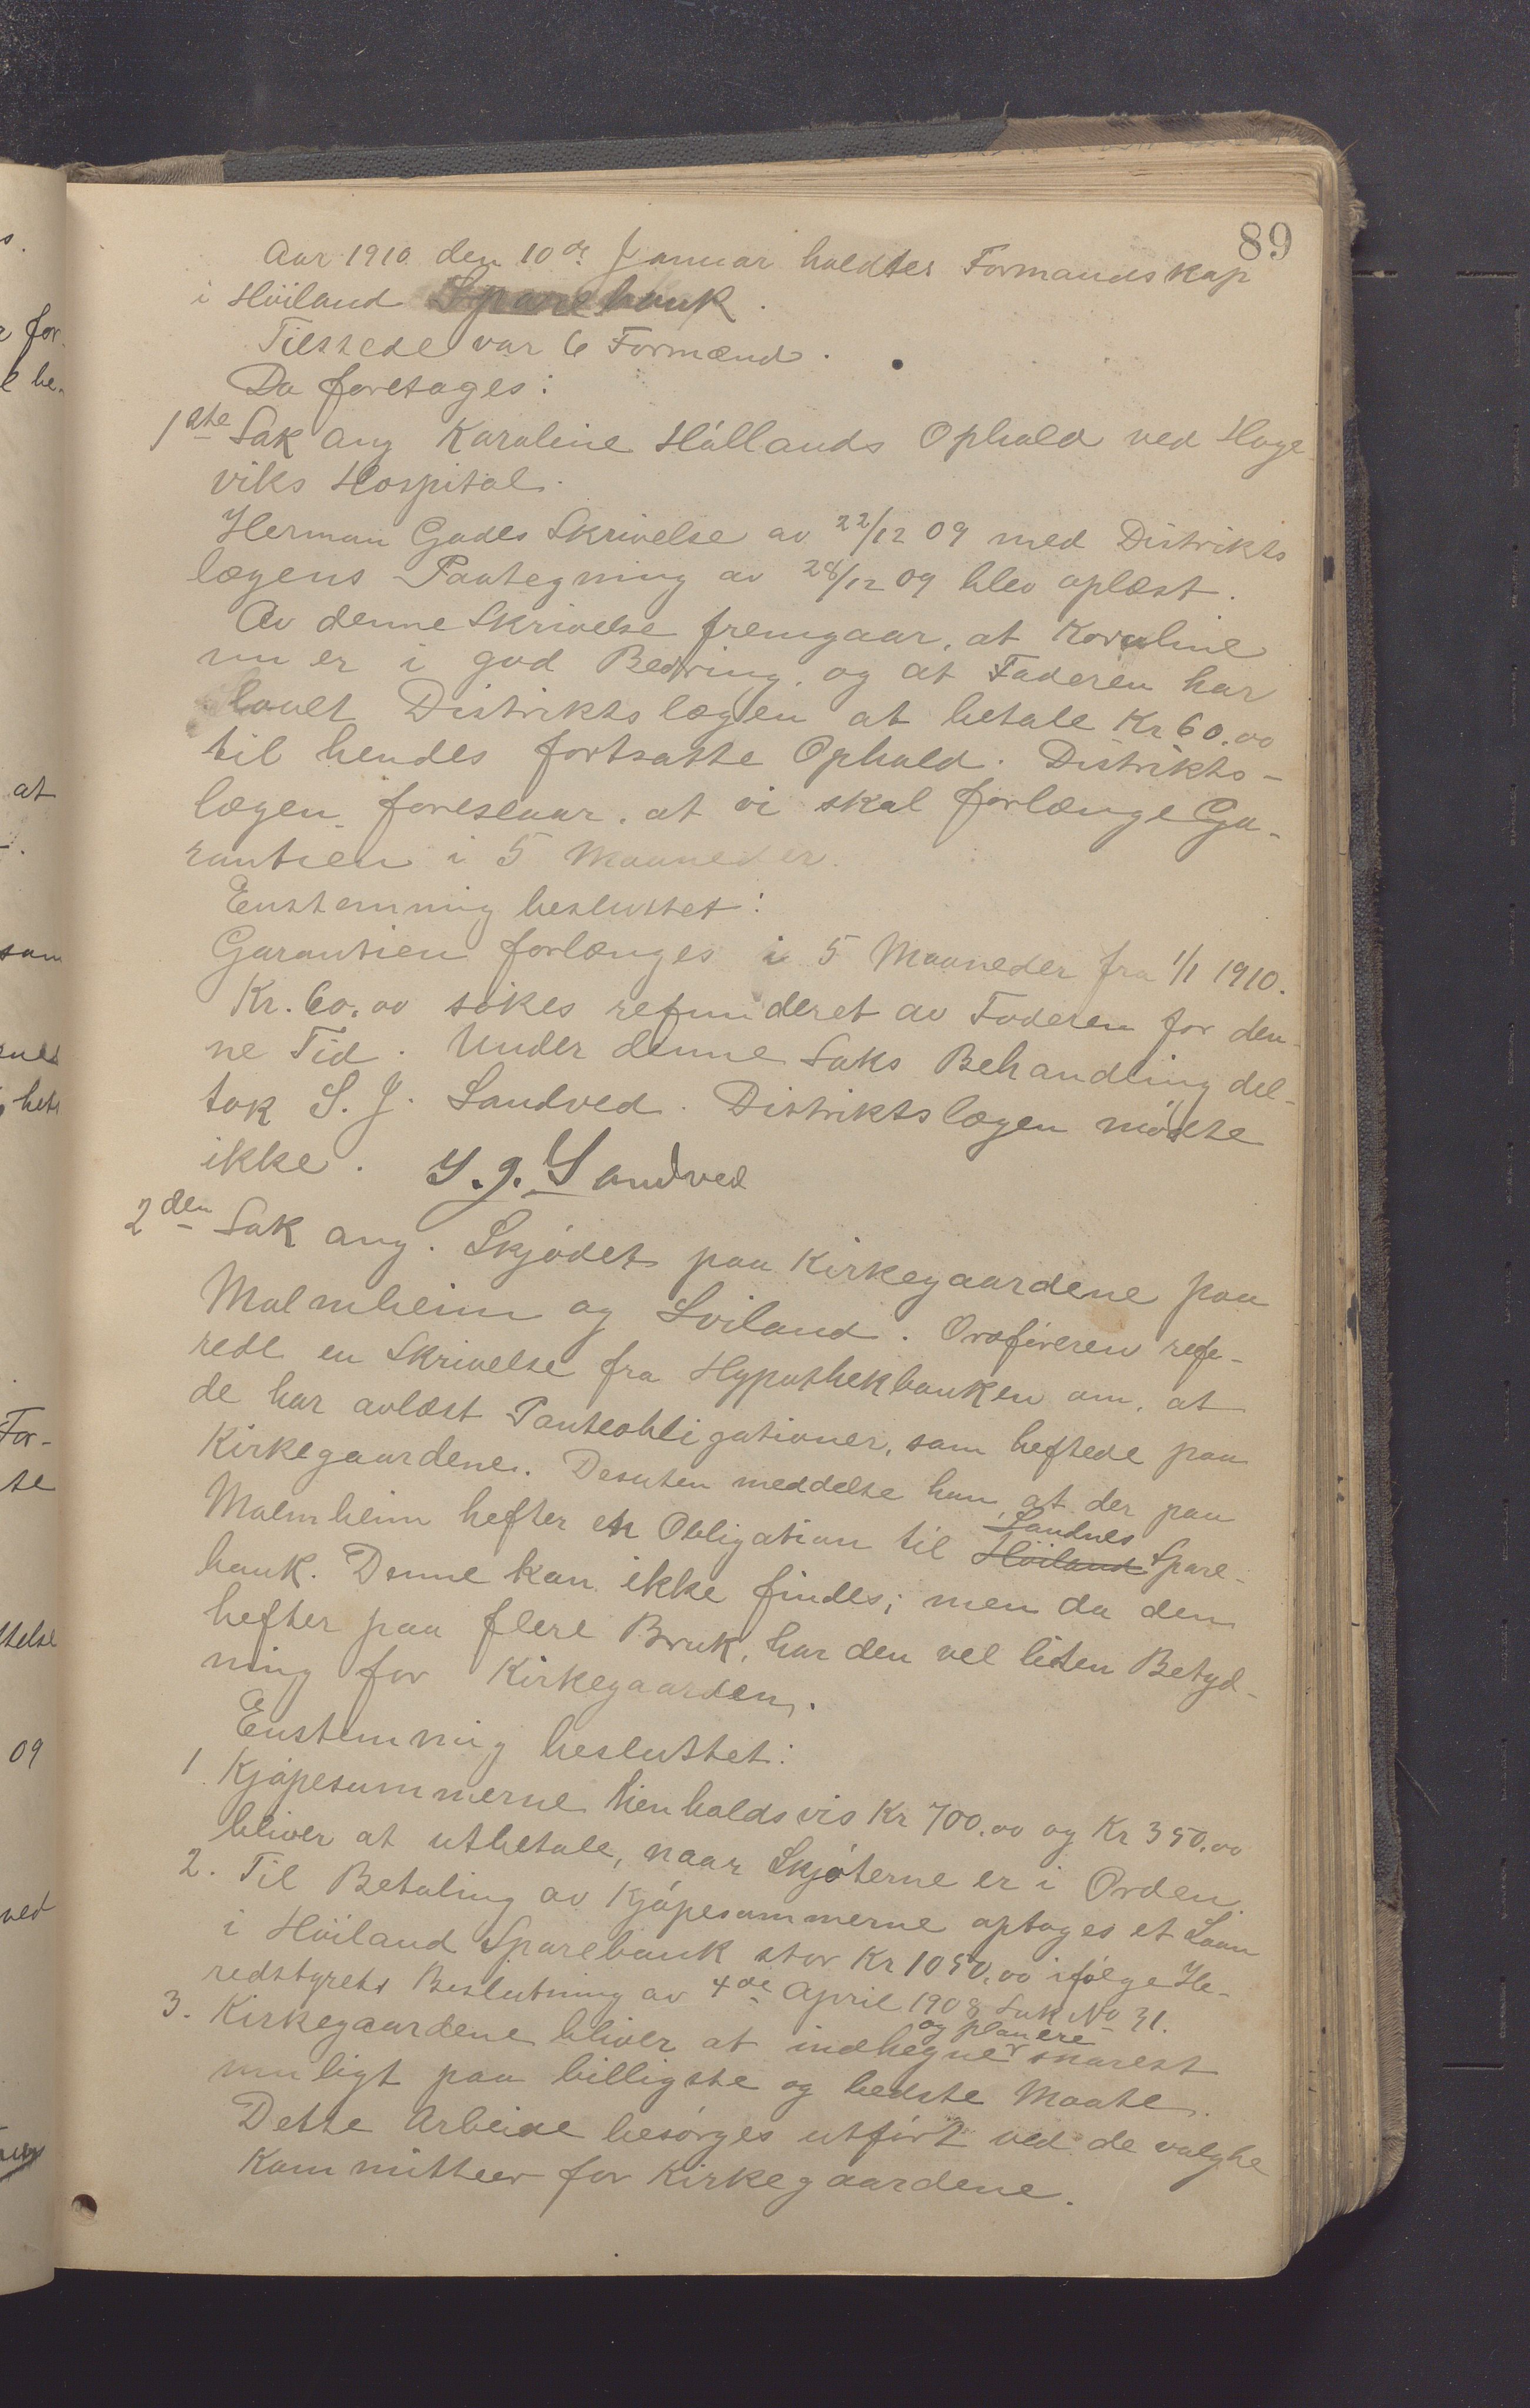 89
Aar 1910 den 10de Januar holdtes Formandskap
i Höiland Sparebank.
Tilstede var 6 Formænd.
Da foretages:
1ste Sak ang Karoline Hóllands Ophold ved Hage
viks Hospital.
Herman Gades Skrivelse av 22/12 09 med Distrikts
lægens Paategning av 28/12 09 blev oplæst.
Av denne Skrivelse fremgaar, at Karoline
nu er i god Bedring, og at Faderen har
lovet Distriktslægen at betale Kr 60.00
til hendes fortsatte Ophold. Distrikts-
lægen foreslaar, at vi skal forlænge Ga-
rantien i 5 Maaneder.
Enstemmig besluttet:
Garantien forlænges i 5 Maaneder fra 1/1 1910.
Kr. 60.00 sökes refunderet av Faderen for den-
ne Tid. Under denne Saks Behandling del-
tok S. J. Sandved. Distriktslægen mödte
ikke. S. J. Sandved
2den Sak ang. Skjódet paa Kirkegaardene paa
Malmheim og Sviland. Ordföreren refe-
rede en Skrivelse fra Hypothekbanken om, at
de har avlæst Panteobligationer, som heftede paa
Kirkegaardene. Desuten meddelte han, at der paa
Malmheim hefter en Obligation til Höiland Sandnes Spare-
bank. Denne kan ikke findes; men da den
hefter paa flere Bruk, har den vel liten Betyd-
ning for Kirkegaarden.
Enstemmig besluttet:
1. Kjöpesummerne henholdsvis Kr 700.00 og Kr 350.00
bliver at utbetale, naar Skjóterne er i Orden.
2. Til Betaling av Kjöpesummerne optages et Laan
i Höiland Sparebank stor Kr 1050.00 ifölge He-
redstyrets Beslutning av 4de April 1908 Sak No 31.
3. Kirkegaardene bliver at indhegne og planere snarest
muligt paa billigste og bedste Maate.
Dette Arbeide besörges utfört ved de valgte
Kommitteer for Kirkegaardene.
s.
for
be-
at
som
For-
te
ttelse
09
ved